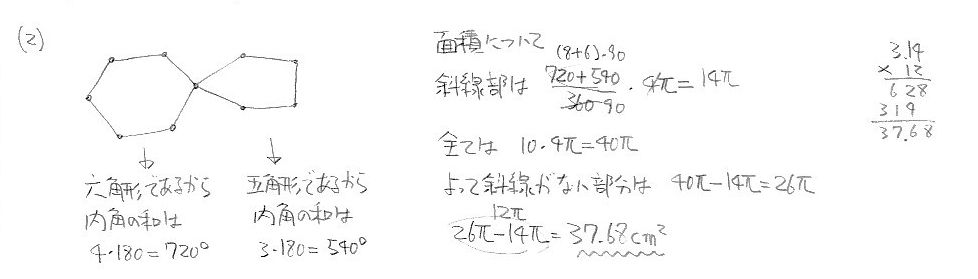 (2)
六角形であるから
内角の和は
4·180=720°
五角形であるから
内角の和は
3·180=540°
面積について
(8+6)·90
斜線部は 720+540/360 90 · 4π=14π
全ては 10·4π=40π
よって斜線がない部分は 40π-14π=26π
12π
26π-14π=37.68cm²
3.14
× 12
628
314
37.68